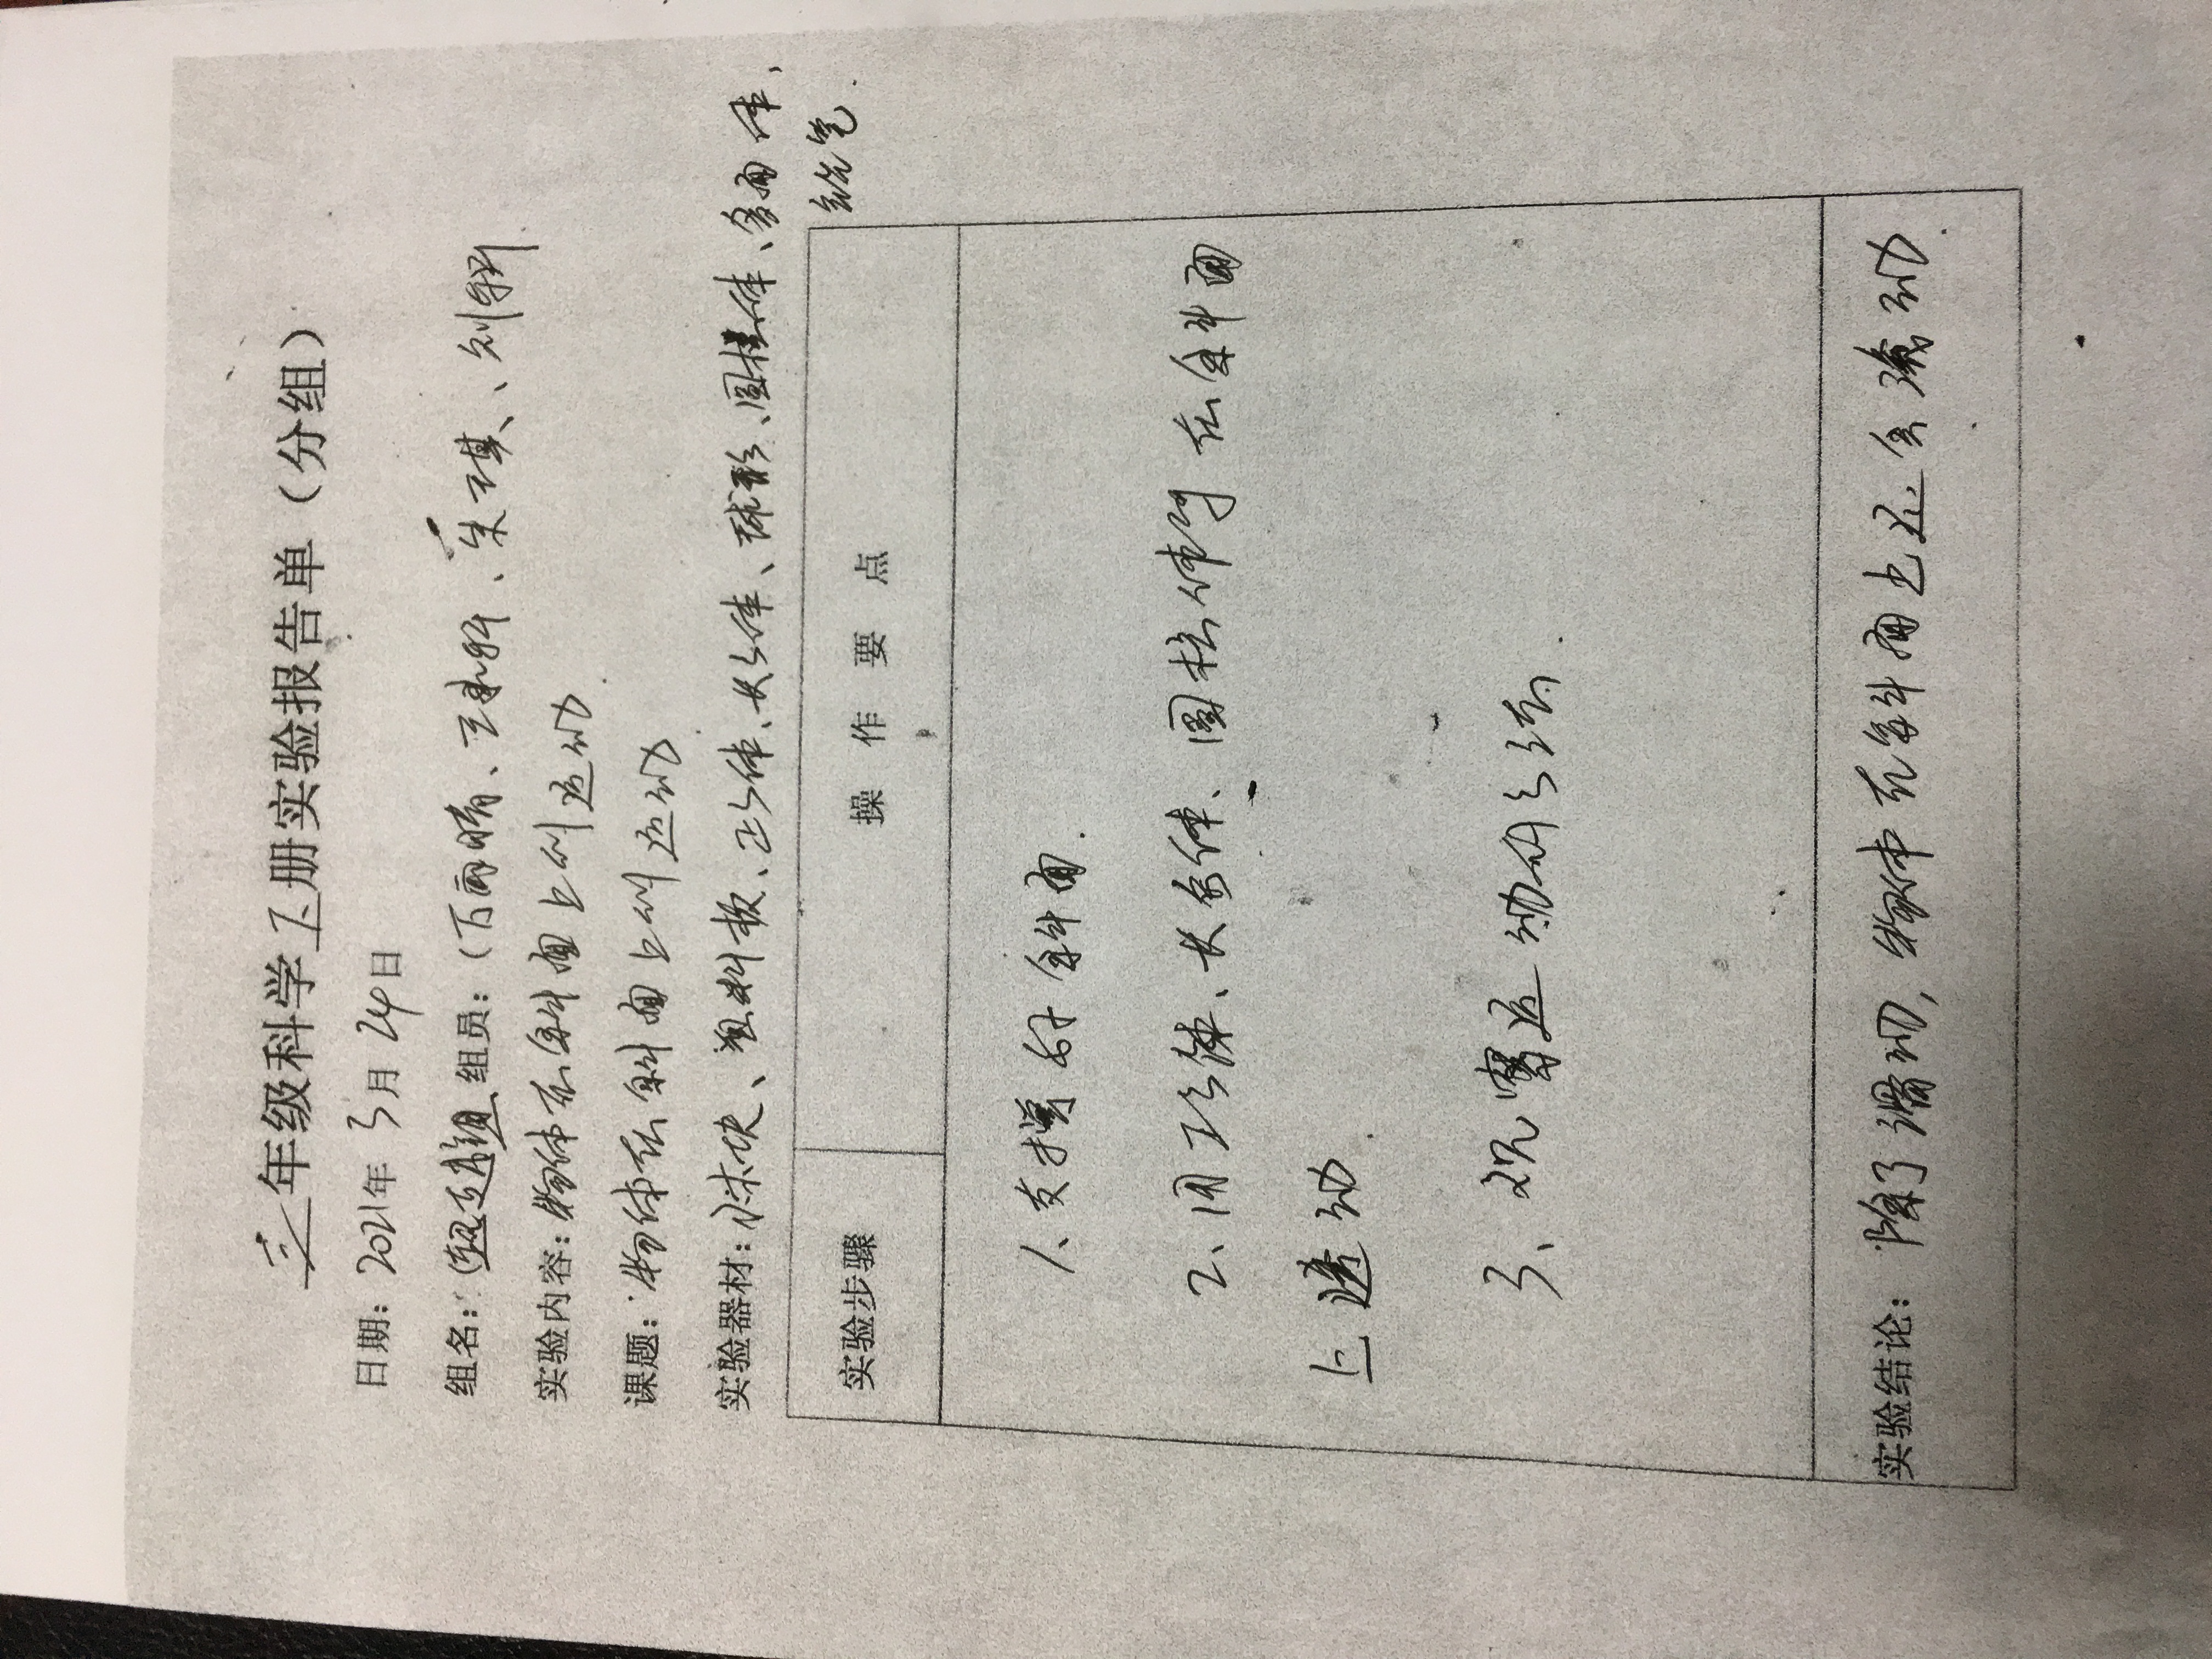 三年级科学下册实验报告单（分组）
日期：2021年3月24日
组名：（超组 组员：（万雨晴、朱琪、刘
实验内容：物体在斜面上的运动
课题：物体在斜面上的运动
实验器材：木块、塑料板、正方体、长方体、球形、圆柱体、多面体、
铅笔.
实验步骤 操作要点
1、支撑好斜面.
2、用正方体、长方体、圆柱体等在斜面
上运动.
3、观察运动的方法.
实验结论：除了滑动，物体在斜面上还会滚动.